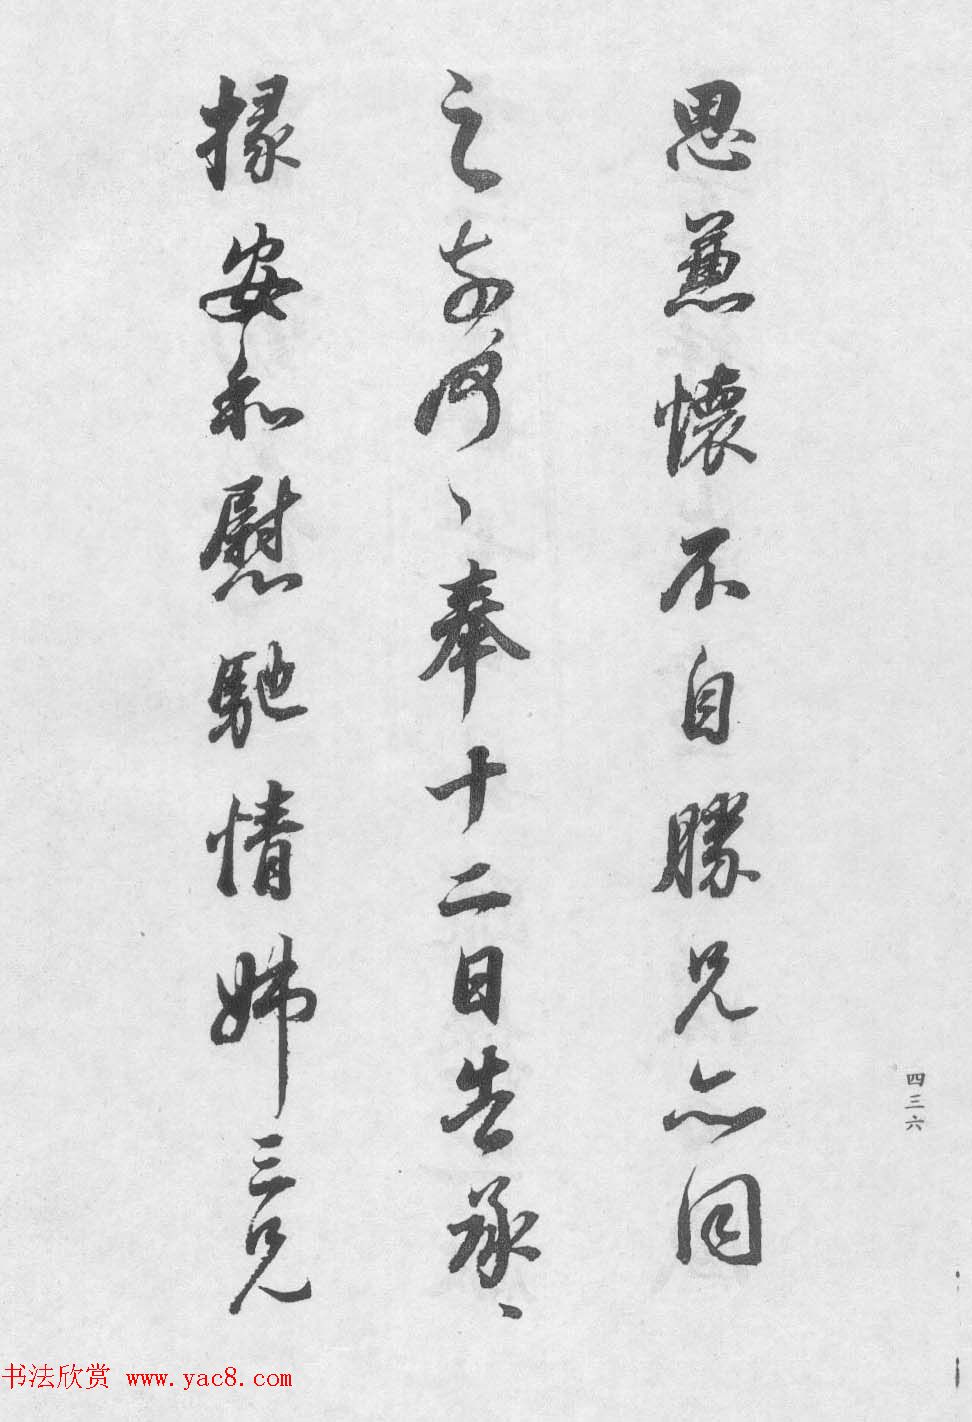 思慕懷不自勝兄亦同
之奈何、奉十二日告承、
掾安和慰馳情姊三兄
四三六
书法欣赏 www.yac8.com